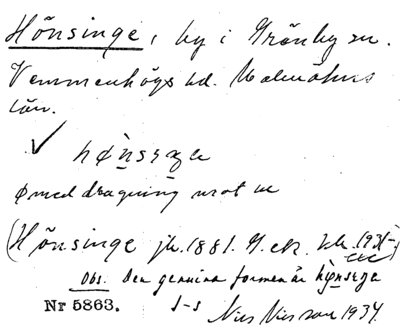 Hönsinge, by i Grönby sn.
Vemmenhögs hd. Malmöhus
län.
✓ hø̀nsɛŋɛ
ø med dragning mot œ
(Hönsinge jb. 1881. G. ek. 1931-)
Obs. Den genuina formen är
Nr 5863. Nils Nilsson 1934.